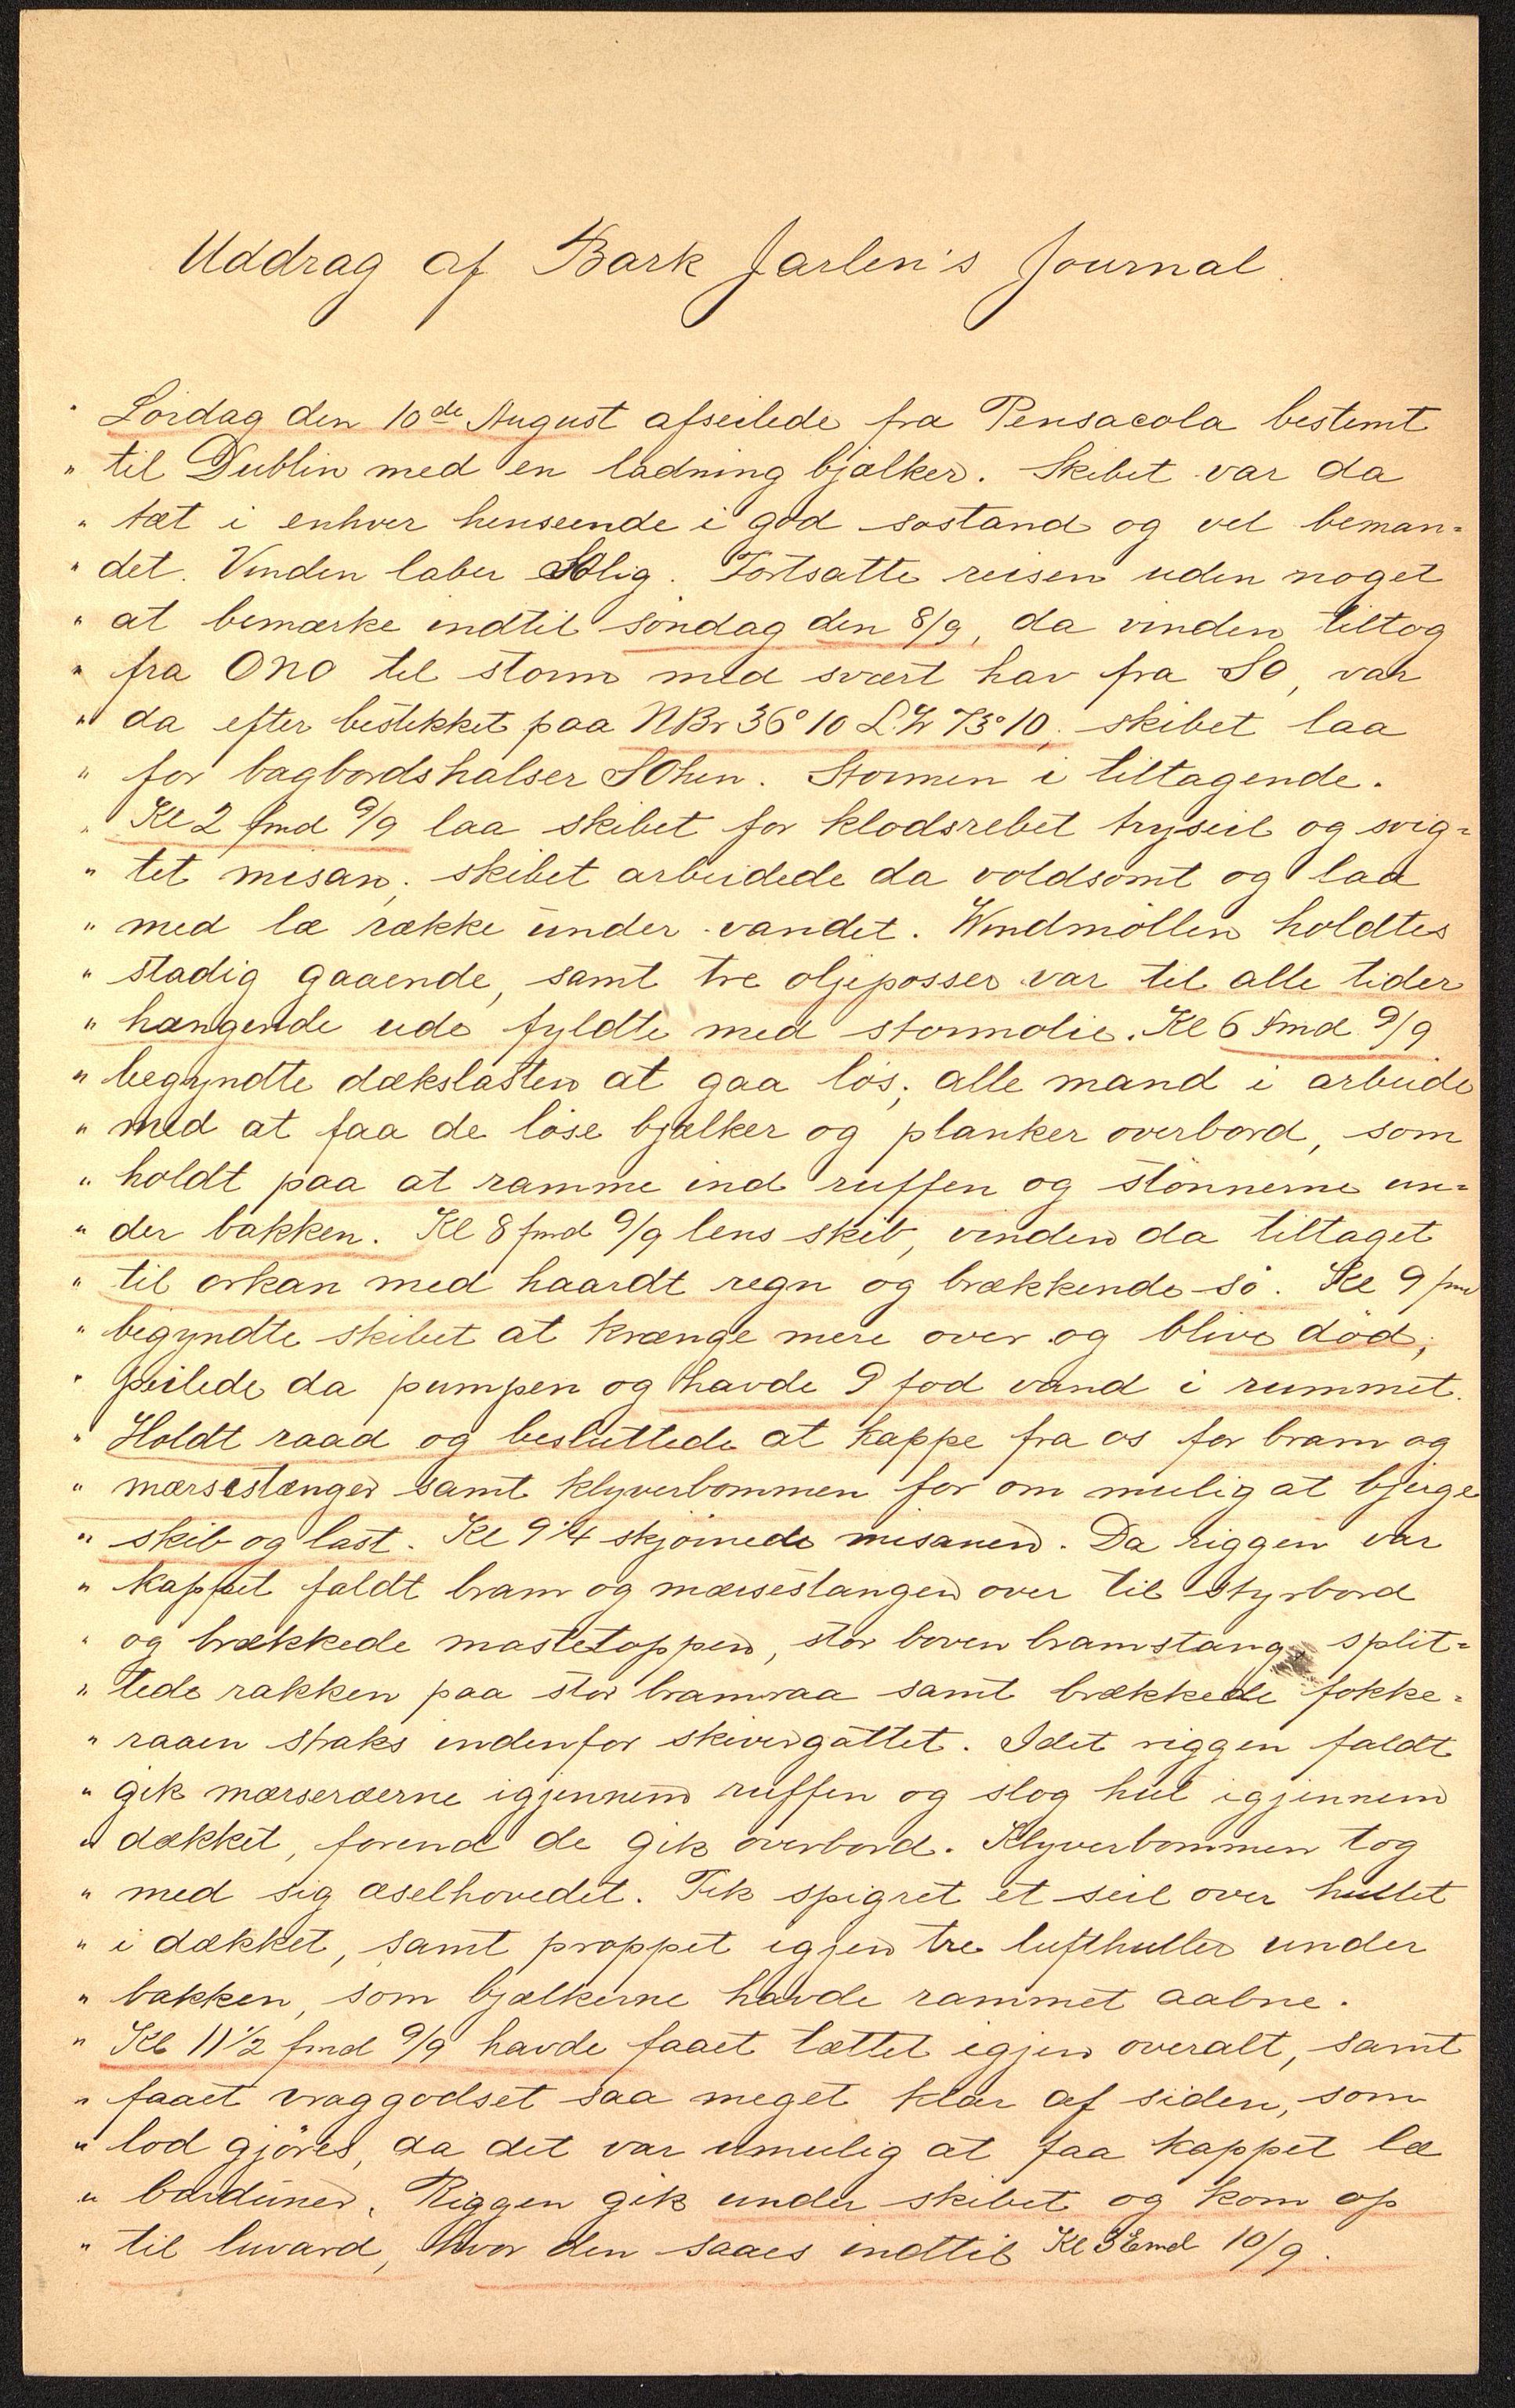 Uddrag af Bark Jarlen's Journal.
" Lördag den 10de August afseilede fra Pensacola bestemt
" til Dublin med en ladning bjælker. Skibet var da
" tæt i enhver henseende i god söstand og vel beman=
" det. Vinden laber SOlig. Fortsatte reisen uden noget
" at bemærke indtil söndag den 8/9, da vinden tiltog
" fra ONO til storm med svært hav fra SO, var
" da efter bestikket paa NBr 36° 10 L.W 73° 10, skibet laa
" for bagbordshalser SOhen. Stormen i tiltagende.
" Kl 2 fmd 9/9 laa skibet for klodsrebet tryseil og svig=
" tet misan; skibet arbeidede da voldsomt og laa
" med læ række under vandet. Windmöllen holdtes
" stadig gaaende, samt tre oljeposser var til alle tider
" hængende ude fyldte med stormolie. Kl 6 Fmd 9/9
" begyndte dækslasten at gaa lös; alle mand i arbeide
" med at faa de löse bjælker og planker overbord, som
" holdt paa at ramme ind ruffen og stönnerne un=
" der bakken. Kl 8 fmd 9/9 lens skib, vinden da tiltaget
" til orkan med haardt regn og brækkende sö. Kl 9 fmd
" begyndte skibet at krænge mere over og blive död;
" peilede da pumpen og havde 9 fod vand i rummet.
" Holdt raad og besluttede at kappe fra os for bram og
" mærsestænger samt klyverbommen for om mulig at bjerge
" skib og last. Kl 9 1/4 skjörnede misanen. Da riggen var
" kappet faldt bram og mærsestangen over til styrbord
" og brækkede mastetoppen, stor boven bramstang split=
" tede rakken paa stor bramraa samt brækkede fokke=
" raaen straks indenfor skivegattet. Idet riggen faldt
" gik mærseræerne igjennem ruffen og slog hul igjennem
" dækket, forend de gik overbord. Klyverbommen tog
" med sig æselhovedet. Fik spigret et seil over hullet
" i dækket, samt proppet igjen tre lufthuller under
" bakken, som bjælkerne havde rammet aabne.
" Kl 11 1/2 fmd 9/9 havde faaet tættet igjen overalt, samt
" faaet vraggodset saa meget klar af siden, som
" lod gjöres, da det var umulig at faa kappet læ
" barduner. Riggen gik under skibet og kom op
" til luvard, hvor den saaes indtil Kl 3 Emd 10/9.